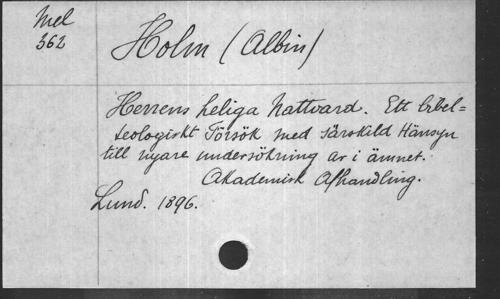 Mel
362
Holm (Albin)
Herrens heliga Nattvard. Ett bibel=
teologiskt Försök med särskild Hänsyn
till nyare undersökning ar i ämnet.
Akademisk Afhandling.
Lund. 1896.